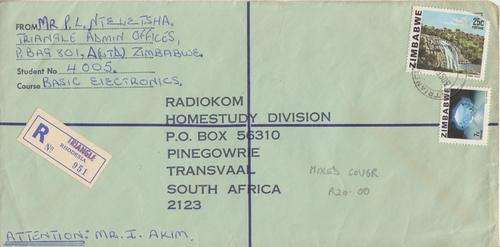 FROM MR P. L. NTELETSHA.
TRIANGLE ADMIN OFFICES,
P. BAG 801, ZIMBABWE.
Student No 4005.
Course BASIC ELECTRONICS.
ZIMBABWE
25c
ZIMBABWE
R
No
TRIANGLE
RHODESIA
951
RADIOKOM
HOMESTUDY DIVISION
P.O. BOX 56310
PINEGOWRIE
TRANSVAAL
SOUTH AFRICA
2123
MIXED COVER
R20-00
ATTENTION: MR. I. AKIM.